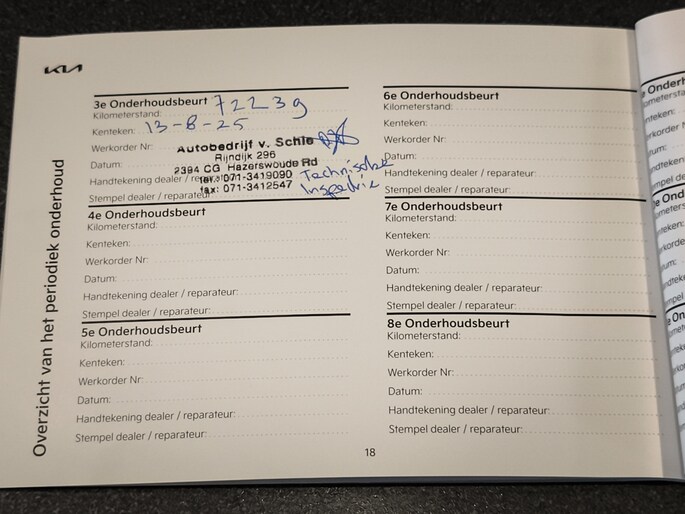 KIA
Overzicht van het periodiek onderhoud
3e Onderhoudsbeurt 72239
Kilometerstand:
Kenteken: 13-8-25
Werkorder Nr:
Autobedrijf v. Schie
Rijndijk 296
Datum:
2394 CG Hazerswoude Rd
Handtekening dealer / reparateur:
tel.: 071-3419090
Technische
Stempel dealer / reparateur:
fax: 071-3412547
Inspectie
4e Onderhoudsbeurt
Kilometerstand:
Kenteken:
Werkorder Nr:
Datum:
Handtekening dealer / reparateur:
Stempel dealer / reparateur:
5e Onderhoudsbeurt
Kilometerstand:
Kenteken:
Werkorder Nr:
Datum:
Handtekening dealer / reparateur:
Stempel dealer / reparateur:
6e Onderhoudsbeurt
Kilometerstand:
Kenteken:
Werkorder Nr:
Datum:
Handtekening dealer / reparateur:
Stempel dealer / reparateur:
7e Onderhoudsbeurt
Kilometerstand:
Kenteken:
Werkorder Nr:
Datum:
Handtekening dealer / reparateur:
Stempel dealer / reparateur:
8e Onderhoudsbeurt
Kilometerstand:
Kenteken:
Werkorder Nr:
Datum:
Handtekening dealer / reparateur:
Stempel dealer / reparateur:
18